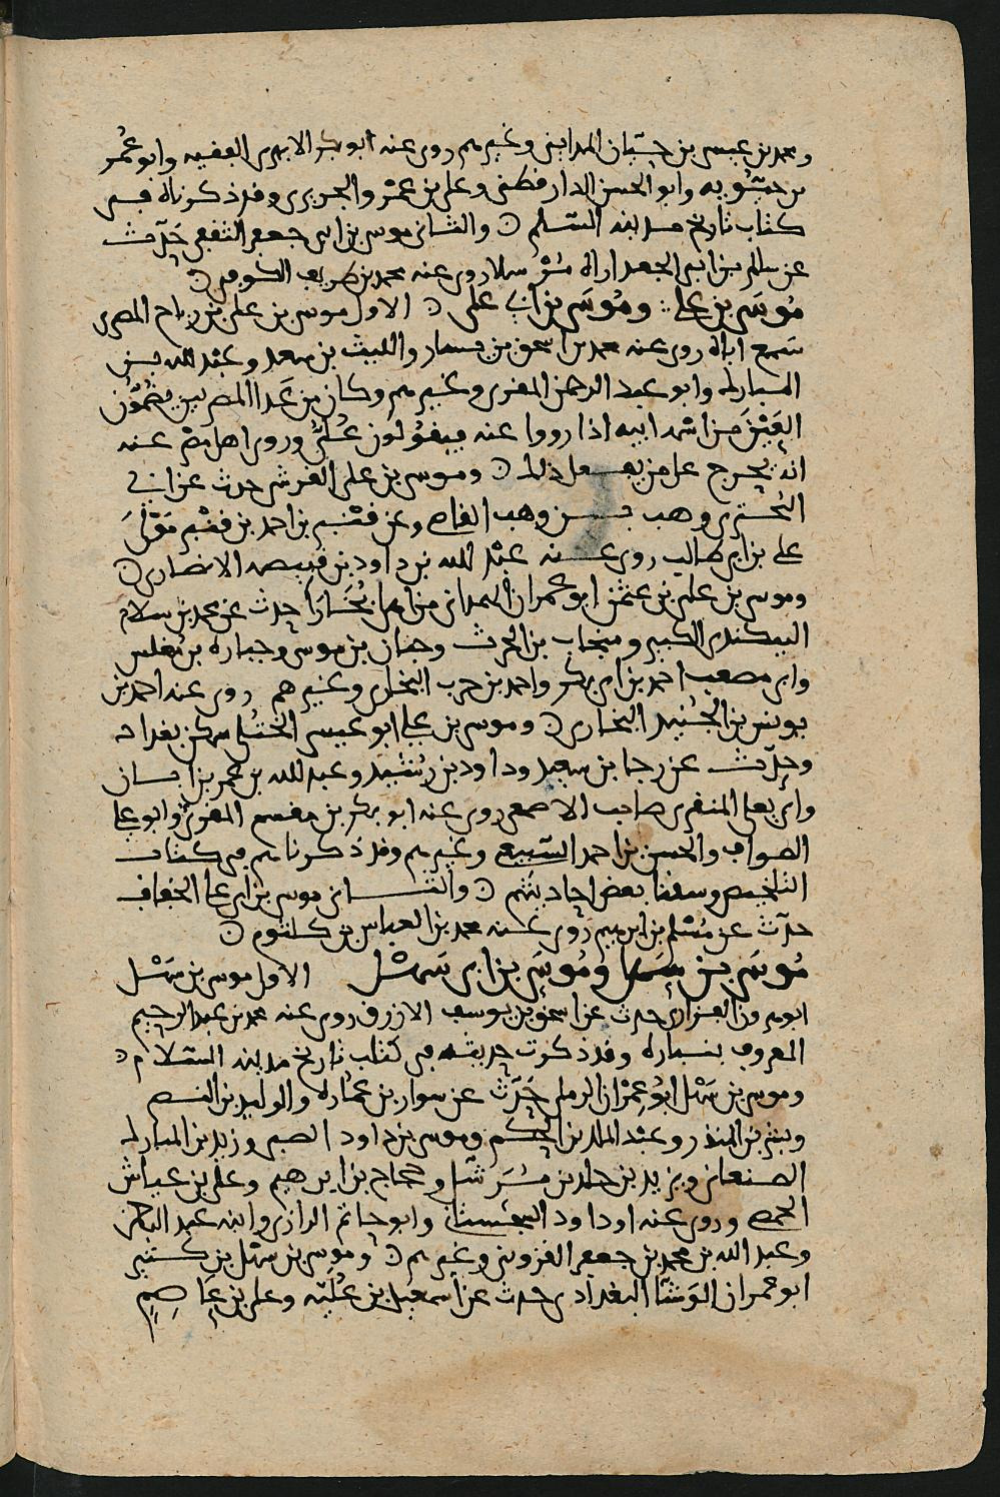 ومحمد بن عيسى بن حيان المدايني وغيرهم روى عنه ابو بكر الابهري الفقيه وابو عمر
بن حيويه وابو الحسن الدارقطني وعلي بن عمر والحريري وقد ذكرناه في
كتاب تاريخ مدينة السلم والثاني موسى بن ابي جعفر الثقفي حدث
عن سالم بن ابي الجعد اراه مرسلا روى عنه محمد بن طريف الكوفي
موسى بن علي وموسى بن ابي علي الاول موسى بن علي بن رباح المصري
سمع اباه روى عنه محمد بن اسحق بن يسار والليث بن سعد وعبد الله بن
المبارك وابو عبد الرحمن المقري وغيرهم وكان من عدا المصريين يضمون
العين من اسم ابيه اذا رووا عنه فيقولون علي وروى اهل مصر عنه
انه يحرج على من يفعل ذلك وموسى بن علي القرشي حدث عن ابي
البختري وهب بن وهب القاضي وعن قنبر بن احمد بن قنبر مولى
علي بن ابي طالب روى عنه عبد الله بن داود بن قبيصه الانصاري
وموسى بن علي بن عثمن ابو عمران الهمداني من اهل بخارا حدث عن محمد بن سلام
البيكندي الكبير ومنجاب بن الحرث وحبان بن موسى وجباره بن مغلس
وابي مصعب احمد بن ابي بكر واحمد بن حرب البخاري وغيرهم روى عنه احمد بن
يونس بن الجنيد البخاري وموسى بن علي ابو عيسى الختلي سكن بغداد
وحدث عن رجا بن سعيد وداود بن رشيد وعبد الله بن عمر بن ابان
وابي يعلى المنقري صاحب الاصمعي روى عنه ابو بكر بن مقسم المقري وابو علي
الصواف والحسن بن احمد السبيعي وغيرهم وقد ذكرناهم في كتاب
التلخيص وسقنا بعض احاديثهم والثاني موسى بن ابي علي الخفاف
حدث عن مسلم بن ابرهيم روى عنه محمد بن العباس بن كلثوم
موسى بن سهل وموسى بن ابي سهل الاول موسى بن سهل
ابو هرون الفزاري حدث عن اسحق بن يوسف الازرق روى عنه محمد بن عبد الرحيم
المعروف بن وقد ذكرت حديثه في كتاب تاريخ مدينة السلام
وموسى بن سهل ابو عمران الرملي حدث عن سوار بن عماره والوليد بن النضر
وبشر بن المنذر وعبد الملك بن الحكم وموسى بن داود الضبي وزيد بن المبارك
الصنعاني ويزيد بن خالد بن مرشل وحجاج بن ابرهيم وعلي بن عياش
الحمصي وروى عنه ابو داود السجستاني وابو حاتم الرازي وابنه عبد الرحمن
وعبد الله بن محمد بن جعفر القزويني وغيرهم وموسى بن سهل بن كثير
ابو عمران الوشا البغدادي حدث عن اسمعيل بن عليه وعلي بن عاصم